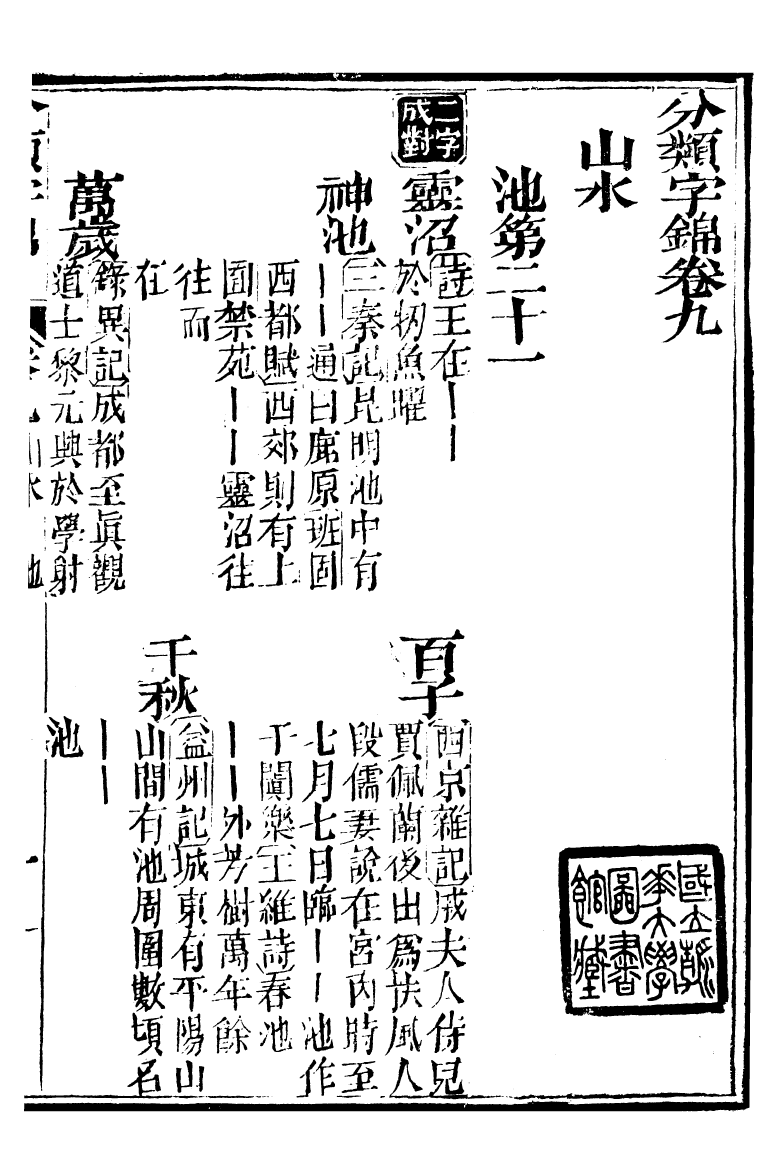 分類字錦卷九
山水
池第二十一
二字成對
靈沼
詩王在｜｜
於牣魚躍
百子
西京雜記戚夫人侍兒
賈佩蘭後出爲扶風人
段儒妻說在宮內時至
七月七日臨｜｜池作
于闐樂王維詩春池
｜｜外芳樹萬年餘
神池
三秦記昆明池中有
｜｜通白鹿原班固
西都賦西郊則有上
囿禁苑｜｜靈沼往
往而
在
千秋
益州記城東有平陽山
山間有池周圍數頃名
｜｜
池
萬歲
錄異記成都至眞觀
道士黎元興於學射
國立
華大學
圖書
館藏